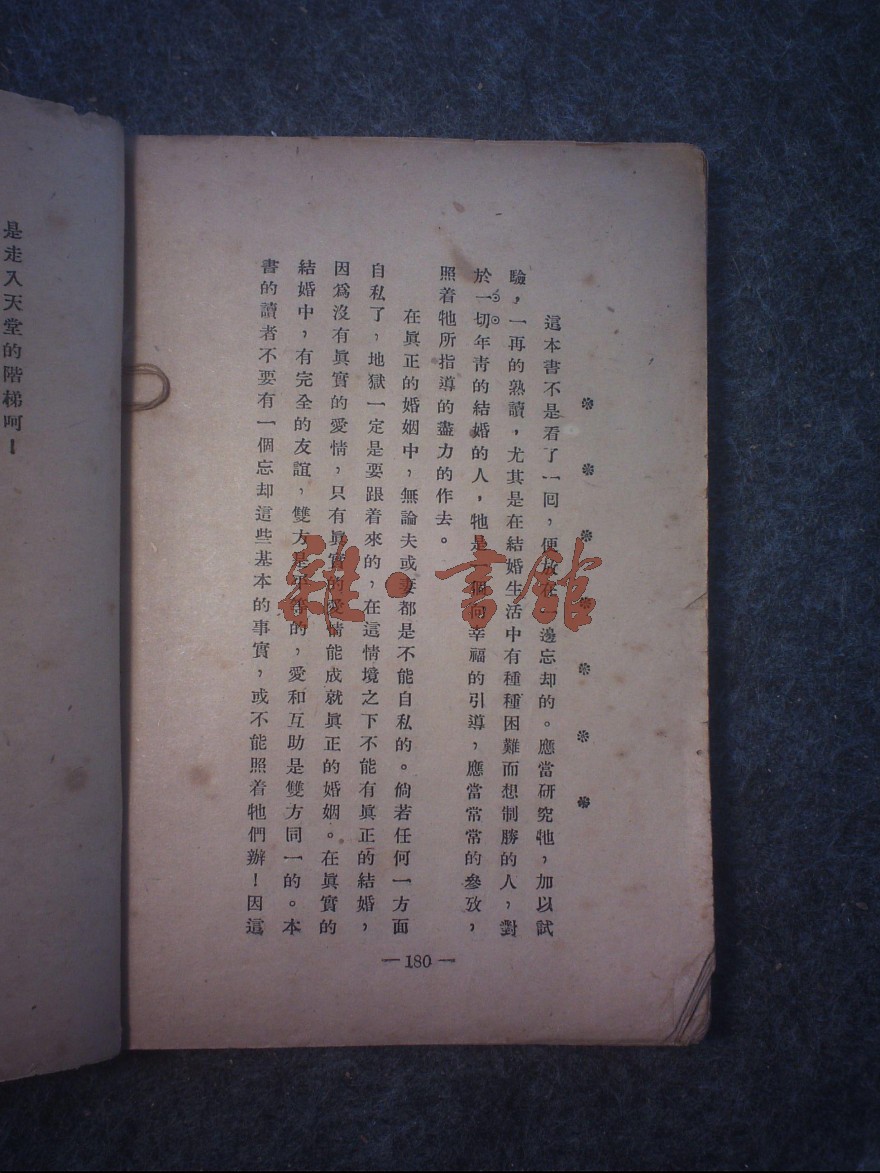 ＊ ＊ ＊ ＊ ＊ ＊ ＊
這本書不是看了一囘，便放在邊忘却的。應當研究牠，加以試
驗，一再的熟讀，尤其是在結婚生活中有種種困難而想制勝的人，對
於一切年靑的結婚的人，牠是一個向幸福的引導，應當常常的參攷，
照着牠所指導的盡力的作去。
在眞正的婚姻中，無論夫或妻都是不能自私的。倘若任何一方面
自私了，地獄一定是要跟着來的，在這情境之下不能有眞正的結婚，
因爲沒有眞實的愛情，只有眞實的愛情能成就眞正的婚姻。在眞實的
結婚中，有完全的友誼，雙方是平等的，愛和互助是雙方同一的。本
書的讀者不要有一個忘却這些基本的事實，或不能照着牠們辦！因這
—180—
是走入天堂的階梯呵！
雜·書館